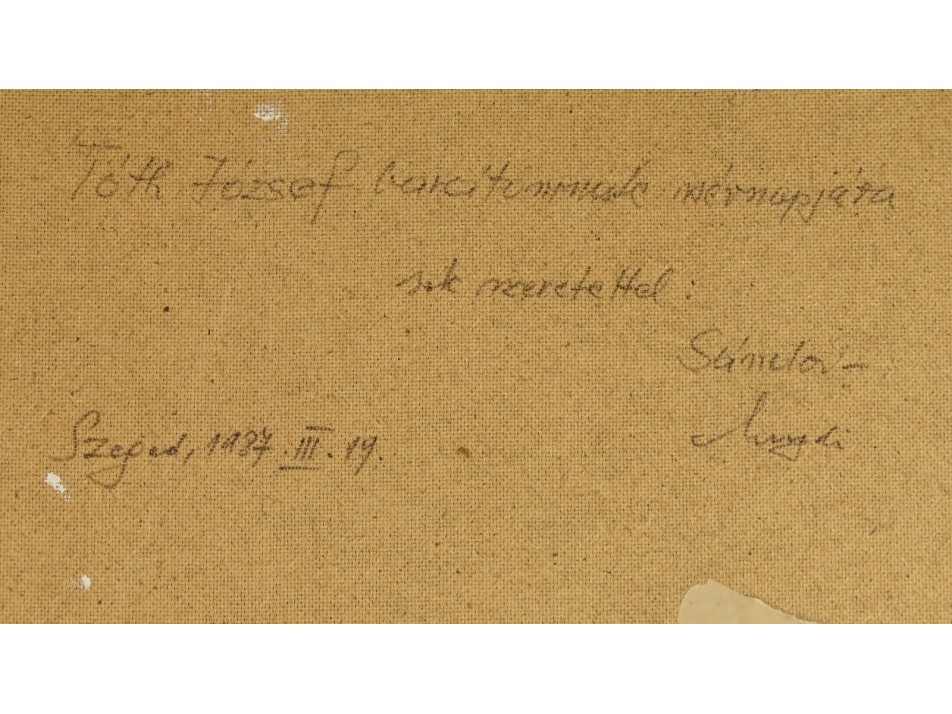 Tóth József barátomnak névnapjára
sok szeretettel:
Sándor-
Magdi
Szeged, 1987. III. 19.